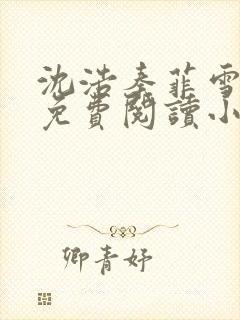 沈浩秦菲雪
免費閱讀小
卿青妤